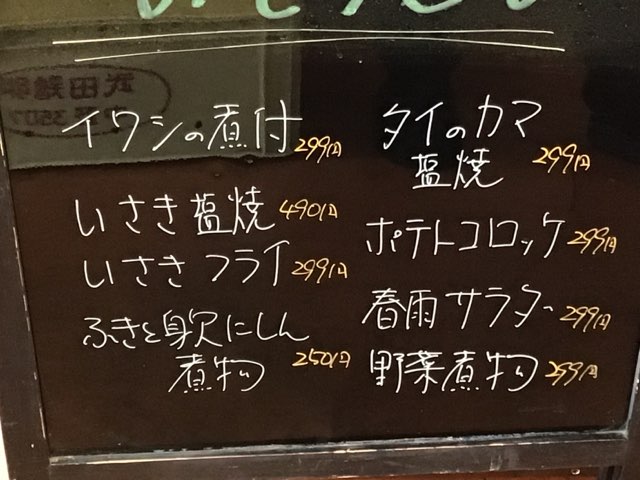 イワシの煮付 299円
いさき塩焼 490円
いさきフライ 299円
ふきと身欠にしん
煮物 250円
タイのカマ
塩焼 299円
ポテトコロッケ 299円
春雨サラダ 299円
野菜煮物 299円